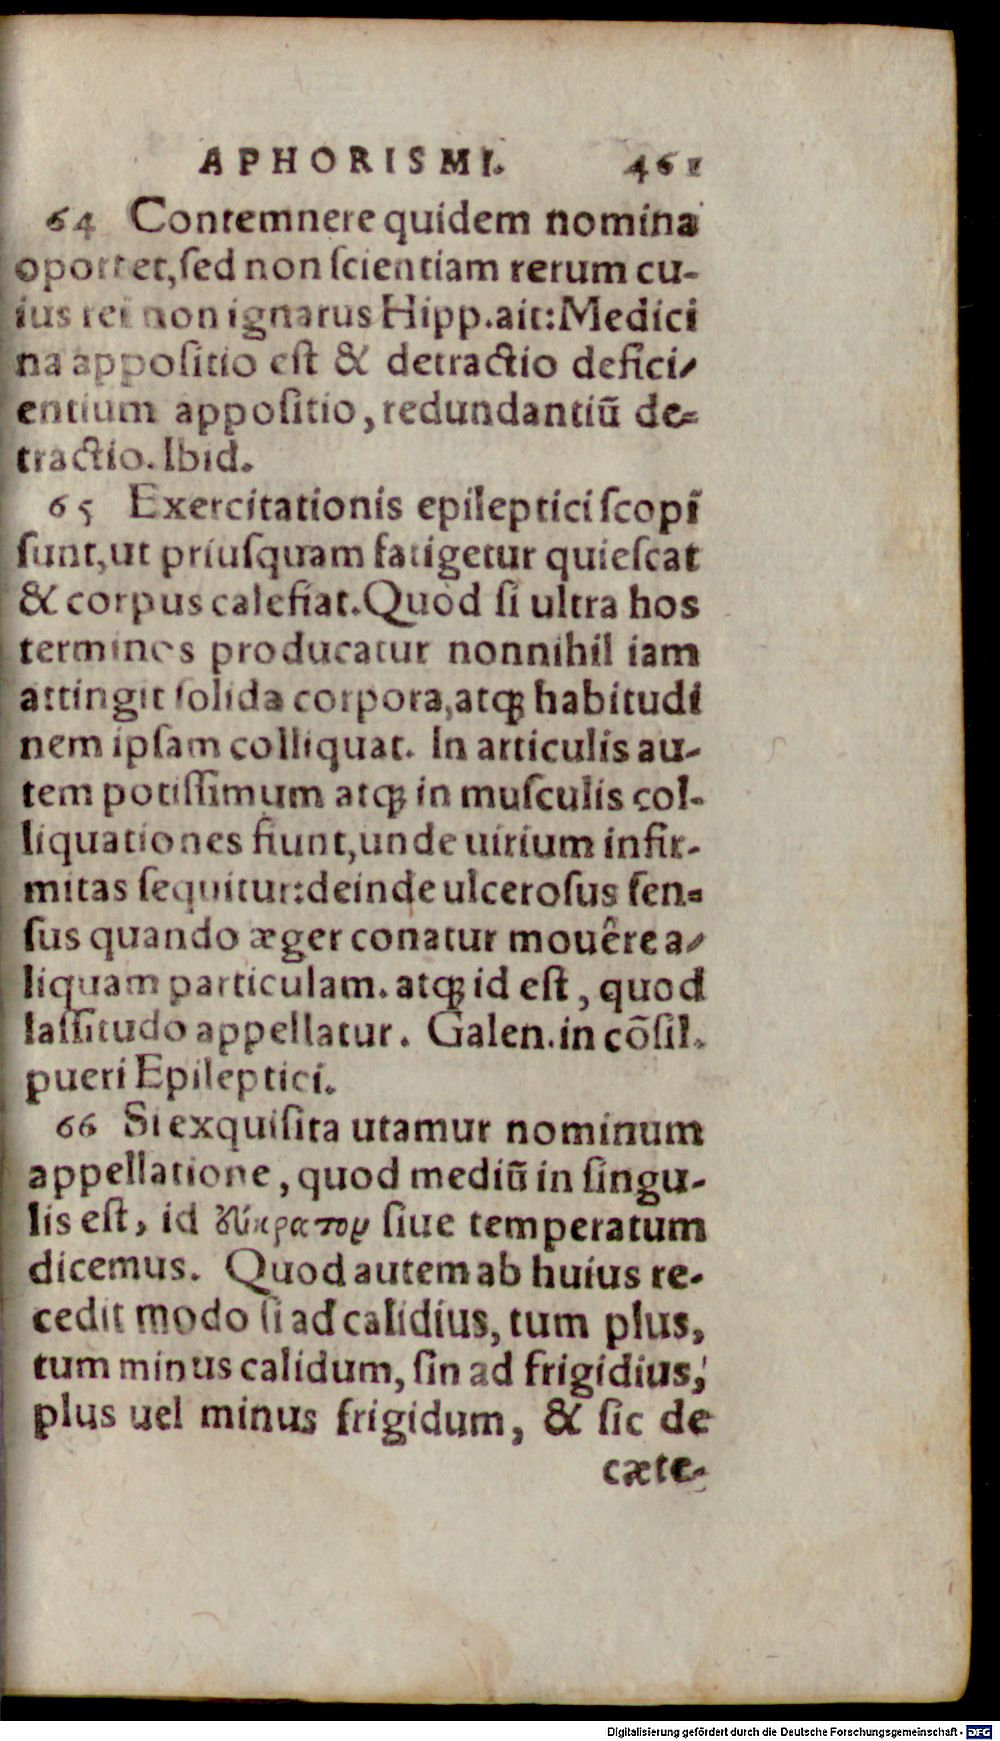 APHORISMI. 461
64 Contemnere quidem nomina
oportet, sed non scientiam rerum cu-
ius rei non ignarus Hipp. ait: Medici
na appositio est & detractio defici-
entium appositio, redundantiũ de-
tractio. Ibid.
65 Exercitationis epileptici scopĩ
sunt, ut priusquam fatigetur quiescat
& corpus calefiat. Quòd si ultra hos
terminos producatur nonnihil iam
attingit solida corpora, atq; habitudi
nem ipsam colliquat. In articulis au-
tem potissimum atq; in musculis col-
liquationes fiunt, unde uirium infir-
mitas sequitur: deinde ulcerosus sen-
sus quando æger conatur mouêre a-
liquam particulam. atq; id est, quod
lassitudo appellatur. Galen. in cõsil.
pueri Epileptici.
66 Si exquisita utamur nominum
appellatione, quod mediũ in singu-
lis est, id siue temperatum
dicemus. Quod autem ab huius re-
cedit modo si ad calidius, tum plus,
tum minus calidum, sin ad frigidius,
plus uel minus frigidum, & sic de
cæte-
Digitalisierung gefördert durch die Deutsche Forschungsgemeinschaft - DFG